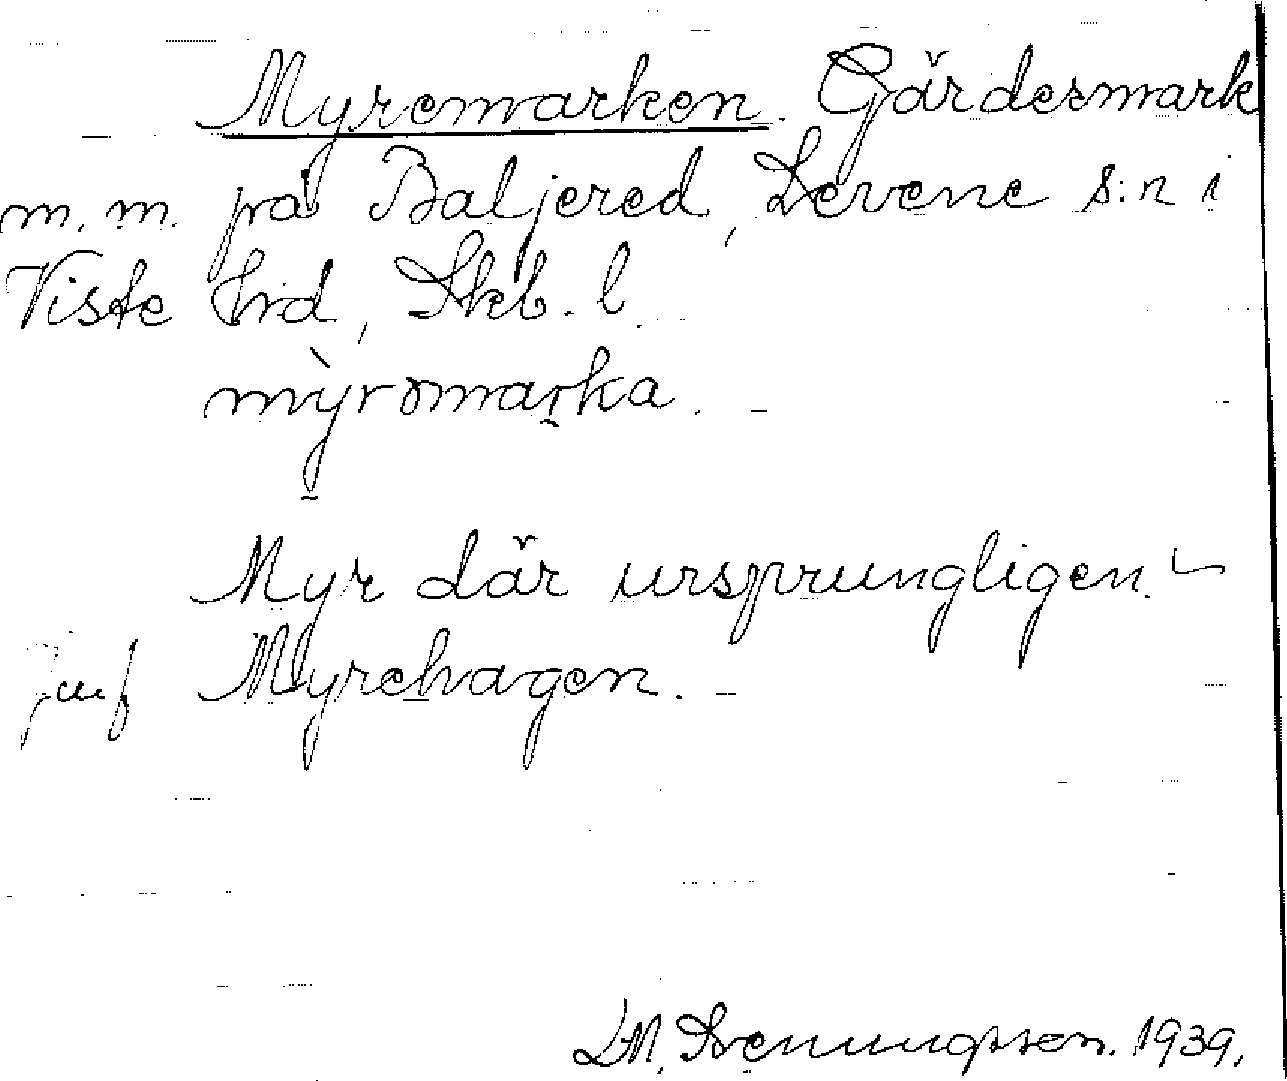 Myremarken. Gärdesmark
m.m. på Baljered, Levene s:n i
Viste hrd, Skb. l.
mỳromarka.
Myr där ursprungligen.
Jmf Myrehagen.
L.M. Svenungsson. 1939.